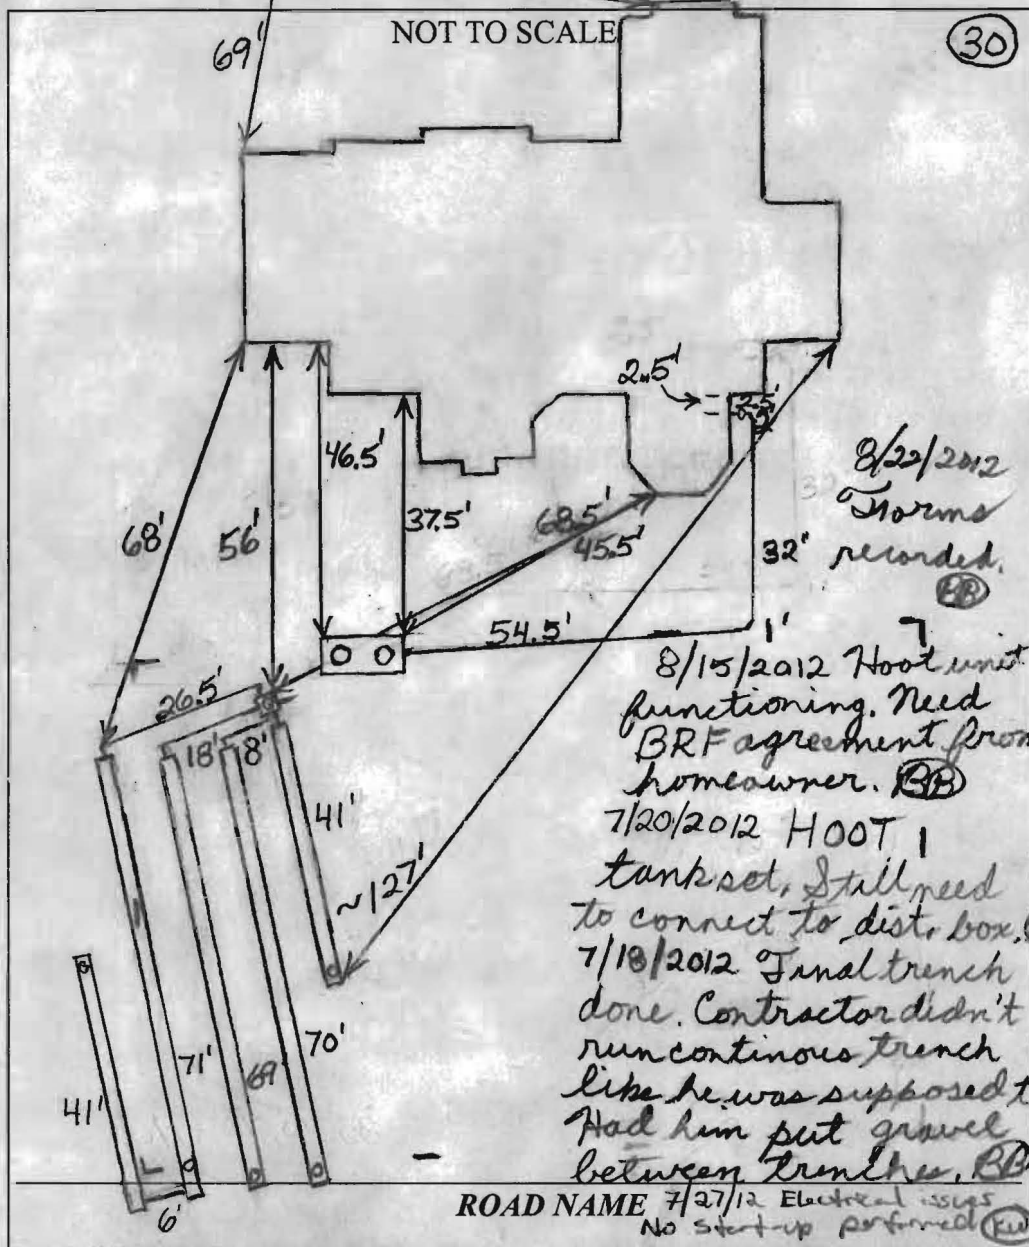 NOT TO SCALE
30
69'
2.5'
2.5'
46.5'
37.5'
68'
56'
68.5'
45.5'
32'
54.5'
1'
26.5'
18'
8'
41'
~127'
71'
69'
70'
41'
6'
8/22/2012
Forms
recorded.
BB
8/15/2012 Hoot unit
functioning. Need
BRF agreement from
homeowner. BB
7/20/2012 HOOT
tank set, Still need
to connect to dist. box.
7/18/2012 Final trench
done. Contractor didn't
run continous trench
like he was supposed t
Had him put gravel
between trenches. BB
ROAD NAME 7/27/12 Electrical issues
No start-up performed KW